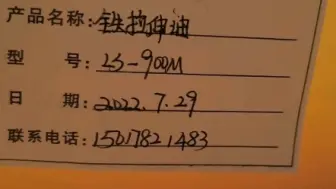 产品名称:铁拉伸油
型 号:LS-900M
日 期:2022.7.29
联系电话:15017821483